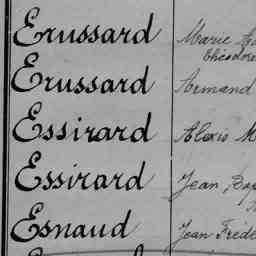 Erussard Marie
Théodore
Erussard Armand
Essirard Alexis M
Essirard Jean Bap
Esnaud Jean Fréde